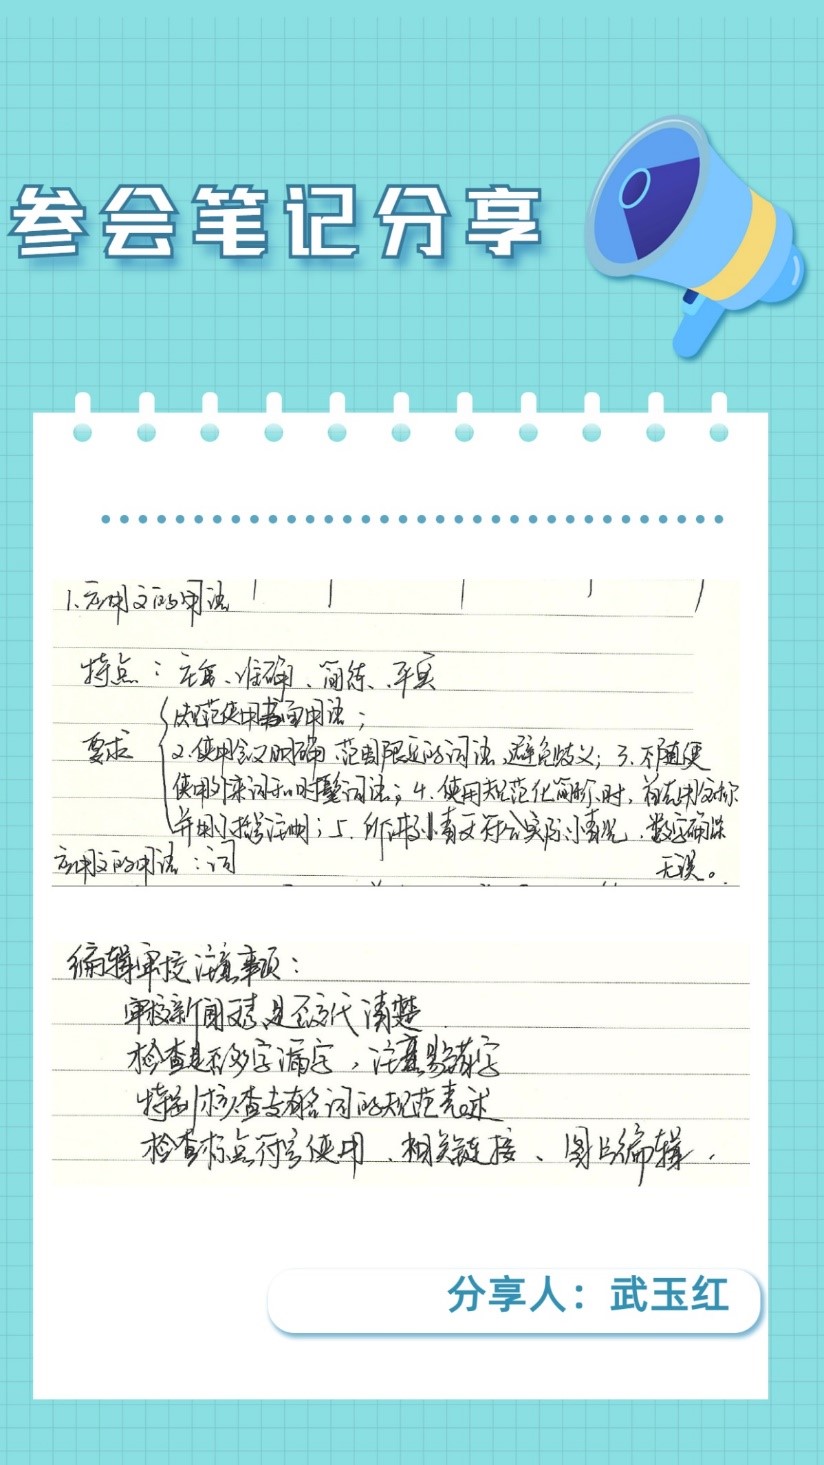 参会笔记分享
1.应用文的用语
特点：庄重、准确、简练、平实
1.规范使用书面用语；
要求 2.使用含义明确、范围限定的词语，避免歧义；3.不随便
使用外来词和时髦词语；4.使用规范化简称时，首先用全称
并用括号注明；5.所涉事情要符合实际情况，数字确保
应用文的用语：词 无误。
编辑审校注意事项：
审校新闻要素是否交代清楚
检查是否多字漏字，注意易错字
特别核查专有名词的规范表述
检查标点符号使用、相关链接、图片编辑．
分享人：武玉红